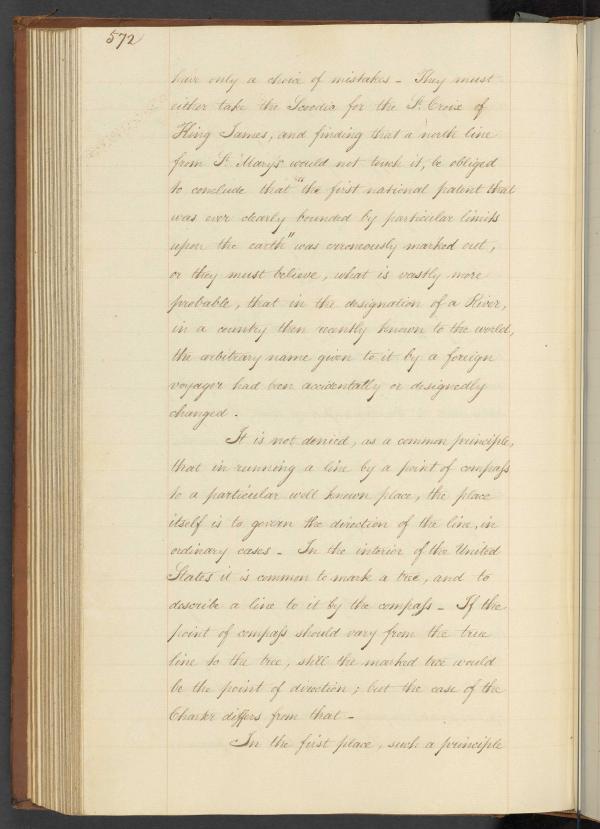 572
have only a choice of mistakes - They must
either take the Scoodic for the St. Croix of
King James, and finding that a north line
from St. Marys would not touch it, be obliged
to conclude that "the first national patent that
was ever clearly bounded by particular limits
upon the earth" was erroneously marked out,
or they must believe, what is vastly more
probable, that in the designation of a River,
in a country then recently known to the world,
the arbitrary name given to it by a foreign
voyager had been accidentally or designedly
changed.
It is not denied, as a common principle,
that in running a line by a point of compass
to a particular well known place, the place
itself is to govern the direction of the line, in
ordinary cases - In the interior of the United
States it is common to mark a tree, and to
describe a line to it by the compass - If the
point of compass should vary from the true
line to the tree, still the marked tree would
be the point of direction; but the case of the
Charter differs from that -
In the first place, such a principle